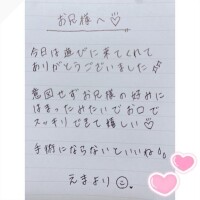 お兄様へ♡
今日は遊びに来てくれて
ありがとうございました
意図せずお兄様の好みに
はまったみたいでお口で
スッキリできて嬉しい♡
手術にならないといいね
えまより